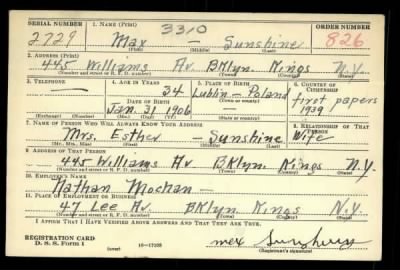 SERIAL NUMBER 1. NAME (Print) 3310 ORDER NUMBER
2729 Max Sunshine 826
(First) (Middle) (Last)
2. ADDRESS (Print)
445 Williams Av. BKlyn. Kings N.Y.
(Number and street or R. F. D. number) (Town) (County) (State)
3. TELEPHONE 4. AGE IN YEARS 5. PLACE OF BIRTH 6. COUNTRY OF CITIZENSHIP
— 34 Lublin - Poland first papers
DATE OF BIRTH (Town or county)
Jan. 31 1906 — 1939
(Mo.) (Day) (Yr.) (State or country)
7. NAME OF PERSON WHO WILL ALWAYS KNOW YOUR ADDRESS 8. RELATIONSHIP OF THAT PERSON
Mrs. Esther — Sunshine Wife
(Mr., Mrs., Miss) (First) (Middle) (Last)
9. ADDRESS OF THAT PERSON
445 Williams Av BKlyn. Kings N.Y.
(Number and street or R. F. D. number) (Town) (County) (State)
10. EMPLOYER'S NAME
Nathan Mochan —
11. PLACE OF EMPLOYMENT OR BUSINESS
47 Lee Av. BKlyn Kings N.Y.
(Number and street or R. F. D. number) (Town) (County) (State)
I AFFIRM THAT I HAVE VERIFIED ABOVE ANSWERS AND THAT THEY ARE TRUE.
REGISTRATION CARD
D. S. S. Form 1 (over) 16—17105
(Registrant's signature)